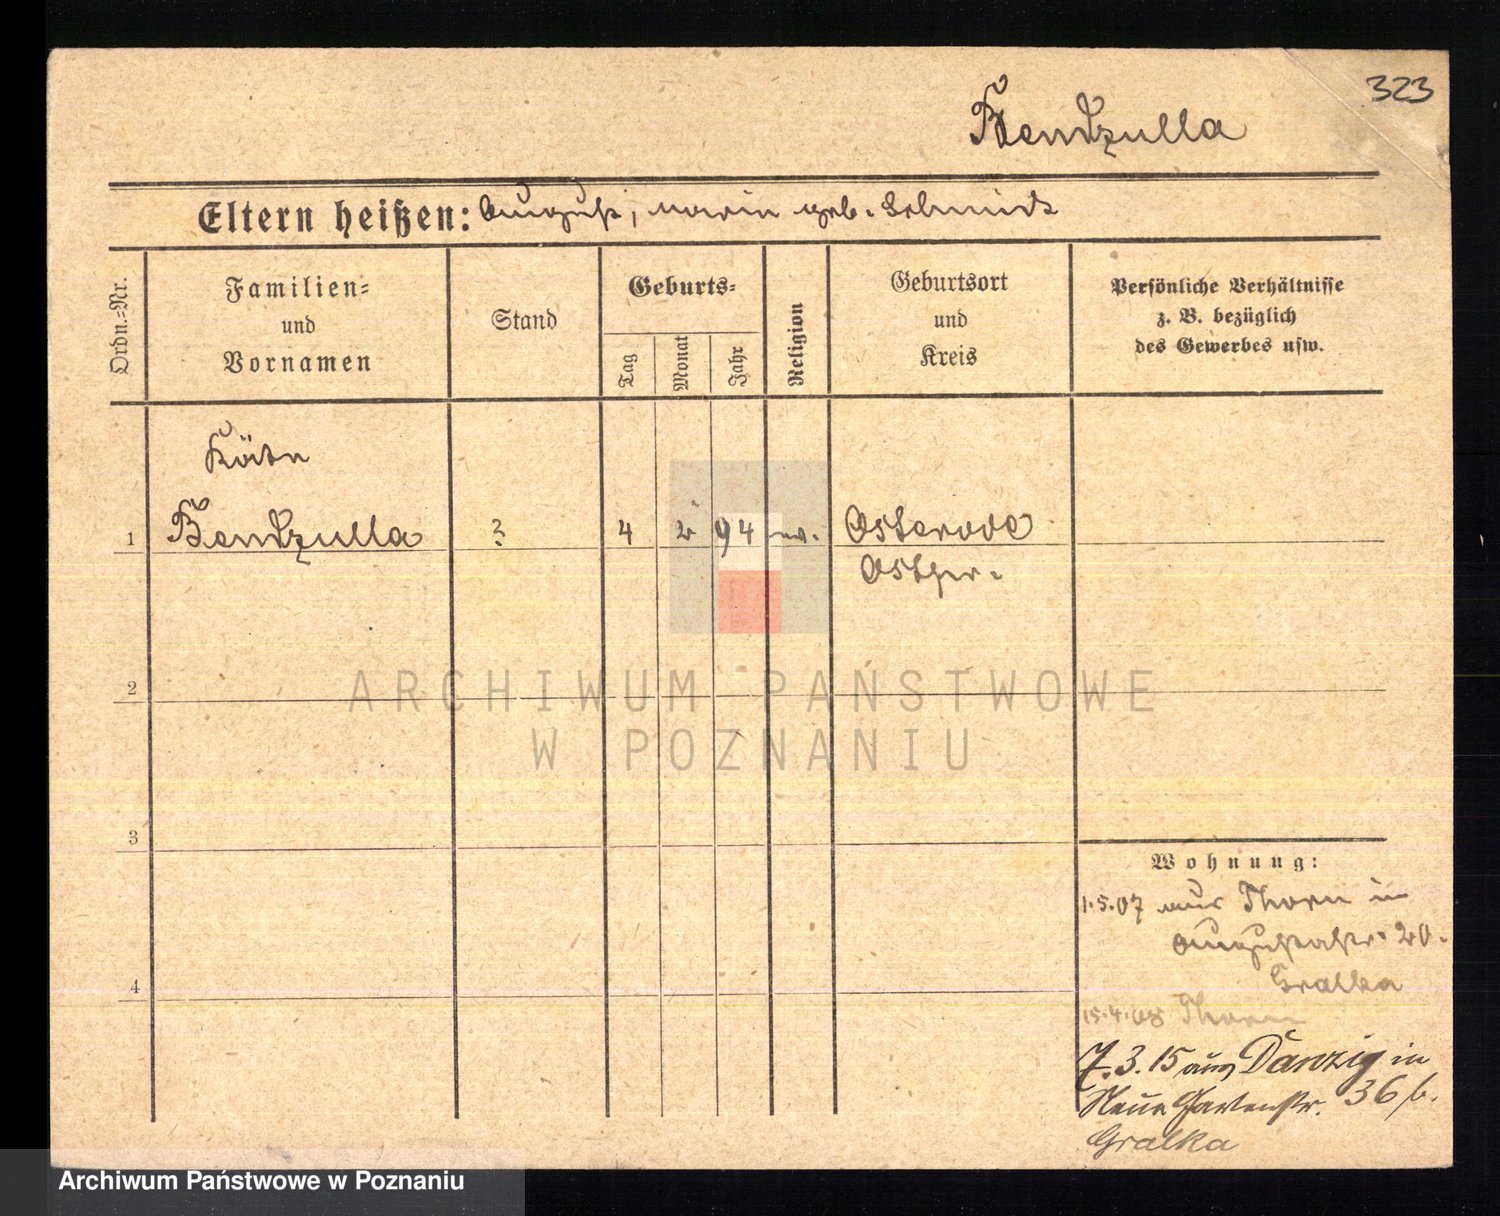 323
Bendzulla
Eltern heißen: August, Marie geb. Schmidt
Ordn.-Nr.
Familien- und Vornamen
Stand
Geburts-
Tag
Monat
Jahr
Religion
Geburtsort und Kreis
Persönliche Verhältnisse
z. B. bezüglich
des Gewerbes usw.
Käte
1 Bendzulla ? 4 2 94 ev. Osterode
Ostpr.
2
ARCHIWUM PAŃSTWOWE
W POZNANIU
3
4
Wohnung:
1.5.07 aus Thorn in
Augustastr. 20.
Gralka
15.4.08 Thorn
7.3.15 aus Danzig in
Neue Gartenstr. 36 b.
Gralka
Archiwum Państwowe w Poznaniu